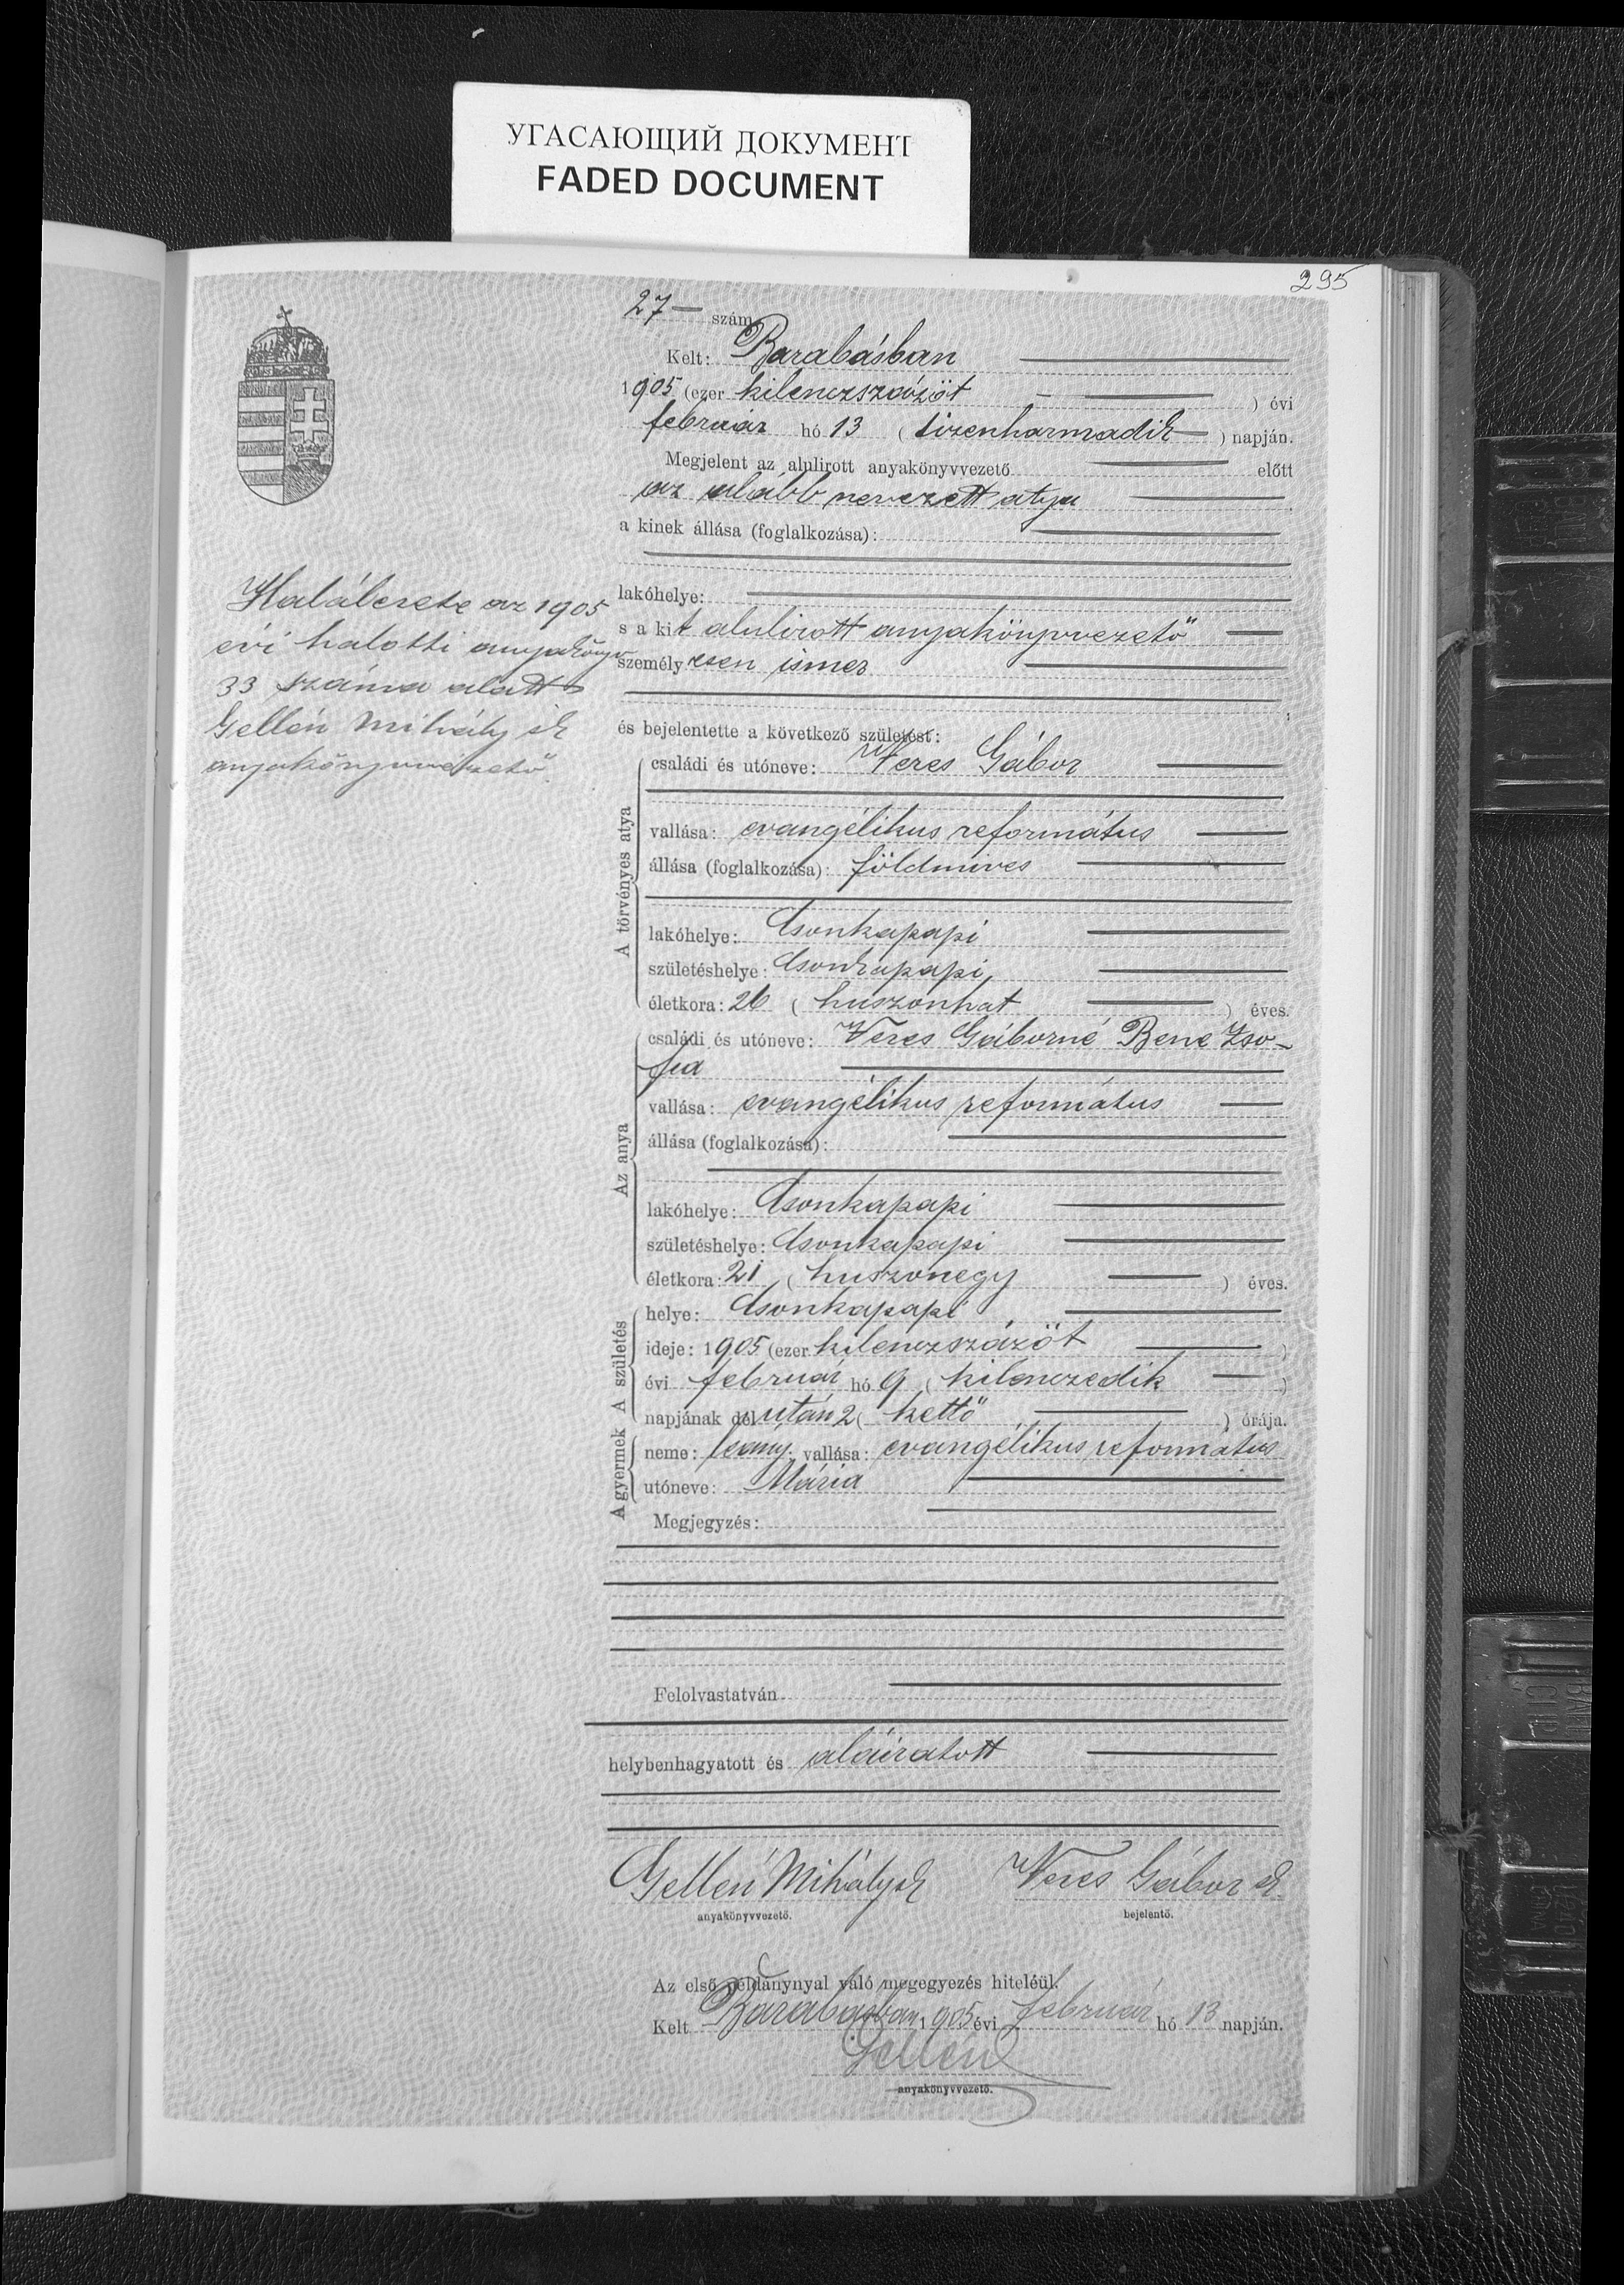 УГАСАЮЩИЙ ДОКУМЕНТ
FADED DOCUMENT
295
27 szám
Kelt: Barabásban
1905 (ezer kilenczszázöt ) évi
február hó 13 ( tizenharmadik ) napján.
Megjelent az alulirott anyakönyvvezető előtt
az alább nevezett atya
a kinek állása (foglalkozása):
lakóhelye:
s a kit alulirott anyakönyvvezető
személyesen ismer
és bejelentette a következő születést:
Halálesete az 1905
évi halotti anyakönyv
33 száma alatt
Gellén Mihály sk
anyakönyvvezető.
A törvényes atya
családi és utóneve: Veres Gábor
vallása: evangélikus református
állása (foglalkozása): földmives
lakóhelye: Csonkapapi
születéshelye: Csonkapapi
életkora: 26 ( huszonhat ) éves.
Az anya
családi és utóneve: Veres Gáborné Bene Zso-
fia
vallása: evangélikus református
állása (foglalkozása):
lakóhelye: Csonkapapi
születéshelye: Csonkapapi
életkora: 21 ( huszonegy ) éves.
A születés
helye: Csonkapapi
ideje: 1905 (ezer kilenczszázöt )
évi február hó 9 ( kilenczedik )
napjának délután 2 ( kettő ) órája.
A gyermek
neme: leány. vallása: evangélikus református
utóneve: Mária
Megjegyzés:
Felolvastatván
helybenhagyatott és aláiratott
Gellén Mihály sk Veres Gábor sk
anyakönyvvezető. bejelentő.
Az első példánynyal való megegyezés hiteléül.
Kelt Barabásban 1905 évi február hó 13 napján.
Gellén
anyakönyvvezető.